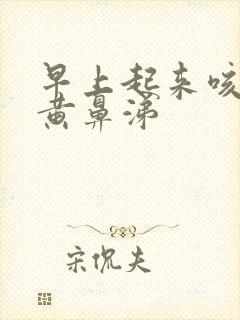 早上起来咳
黄鼻涕
宋侃夫